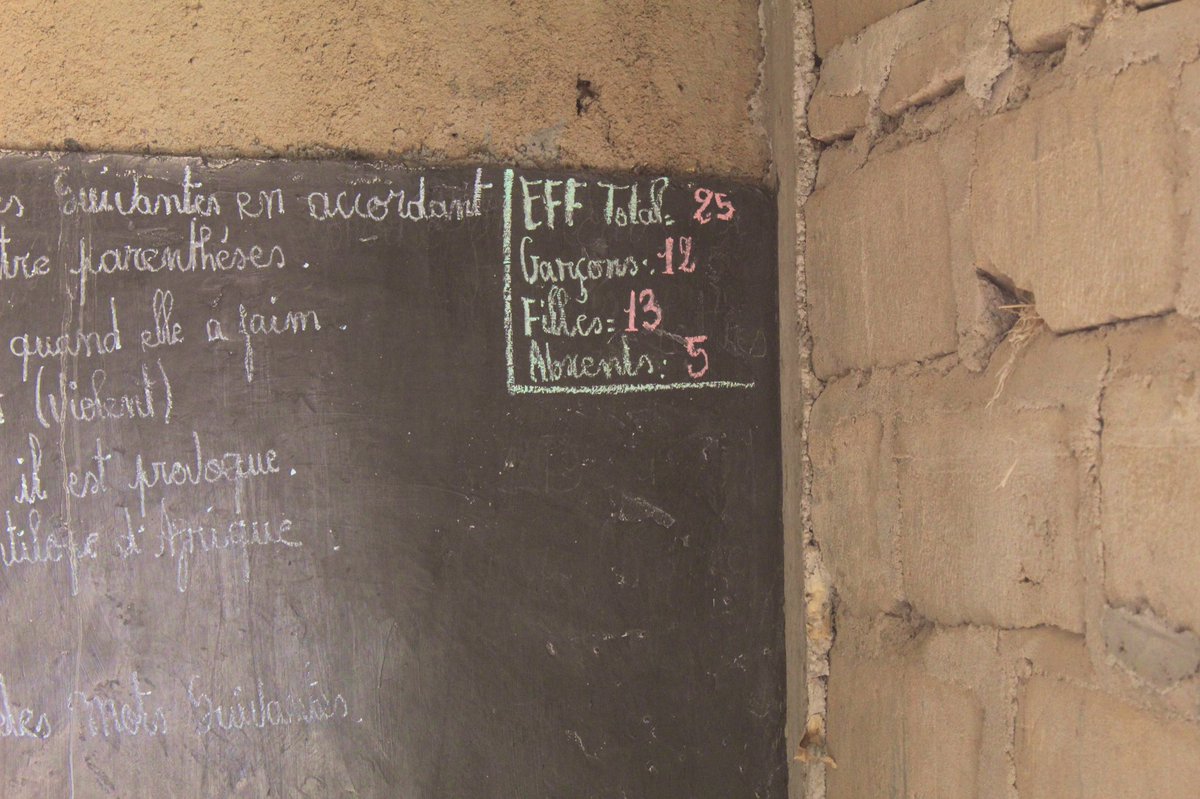 es Suivantes en accordant
tre parenthéses.
quand elle a faim.
(violent)
il est provoque.
ntilope d'Afrique.
des Mots Suivants.
EFF Total: 25
Garçons: 12
Filles: 13
Absents: 5